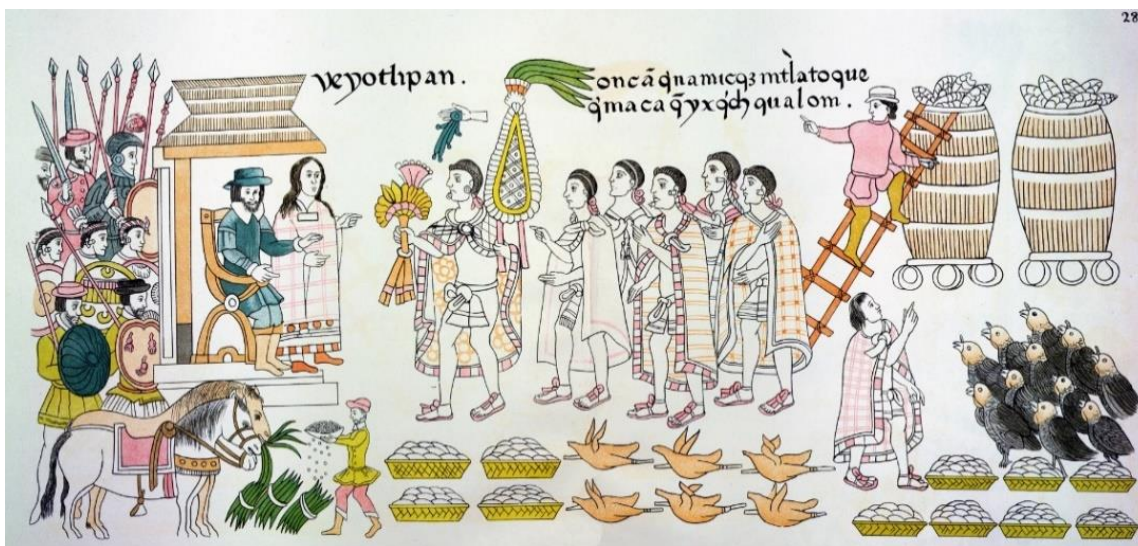 28
veyotlipan.
oncã q̃namicqʒ mtl̀atoque
q̃maca q̃yxq̃ch qualom.